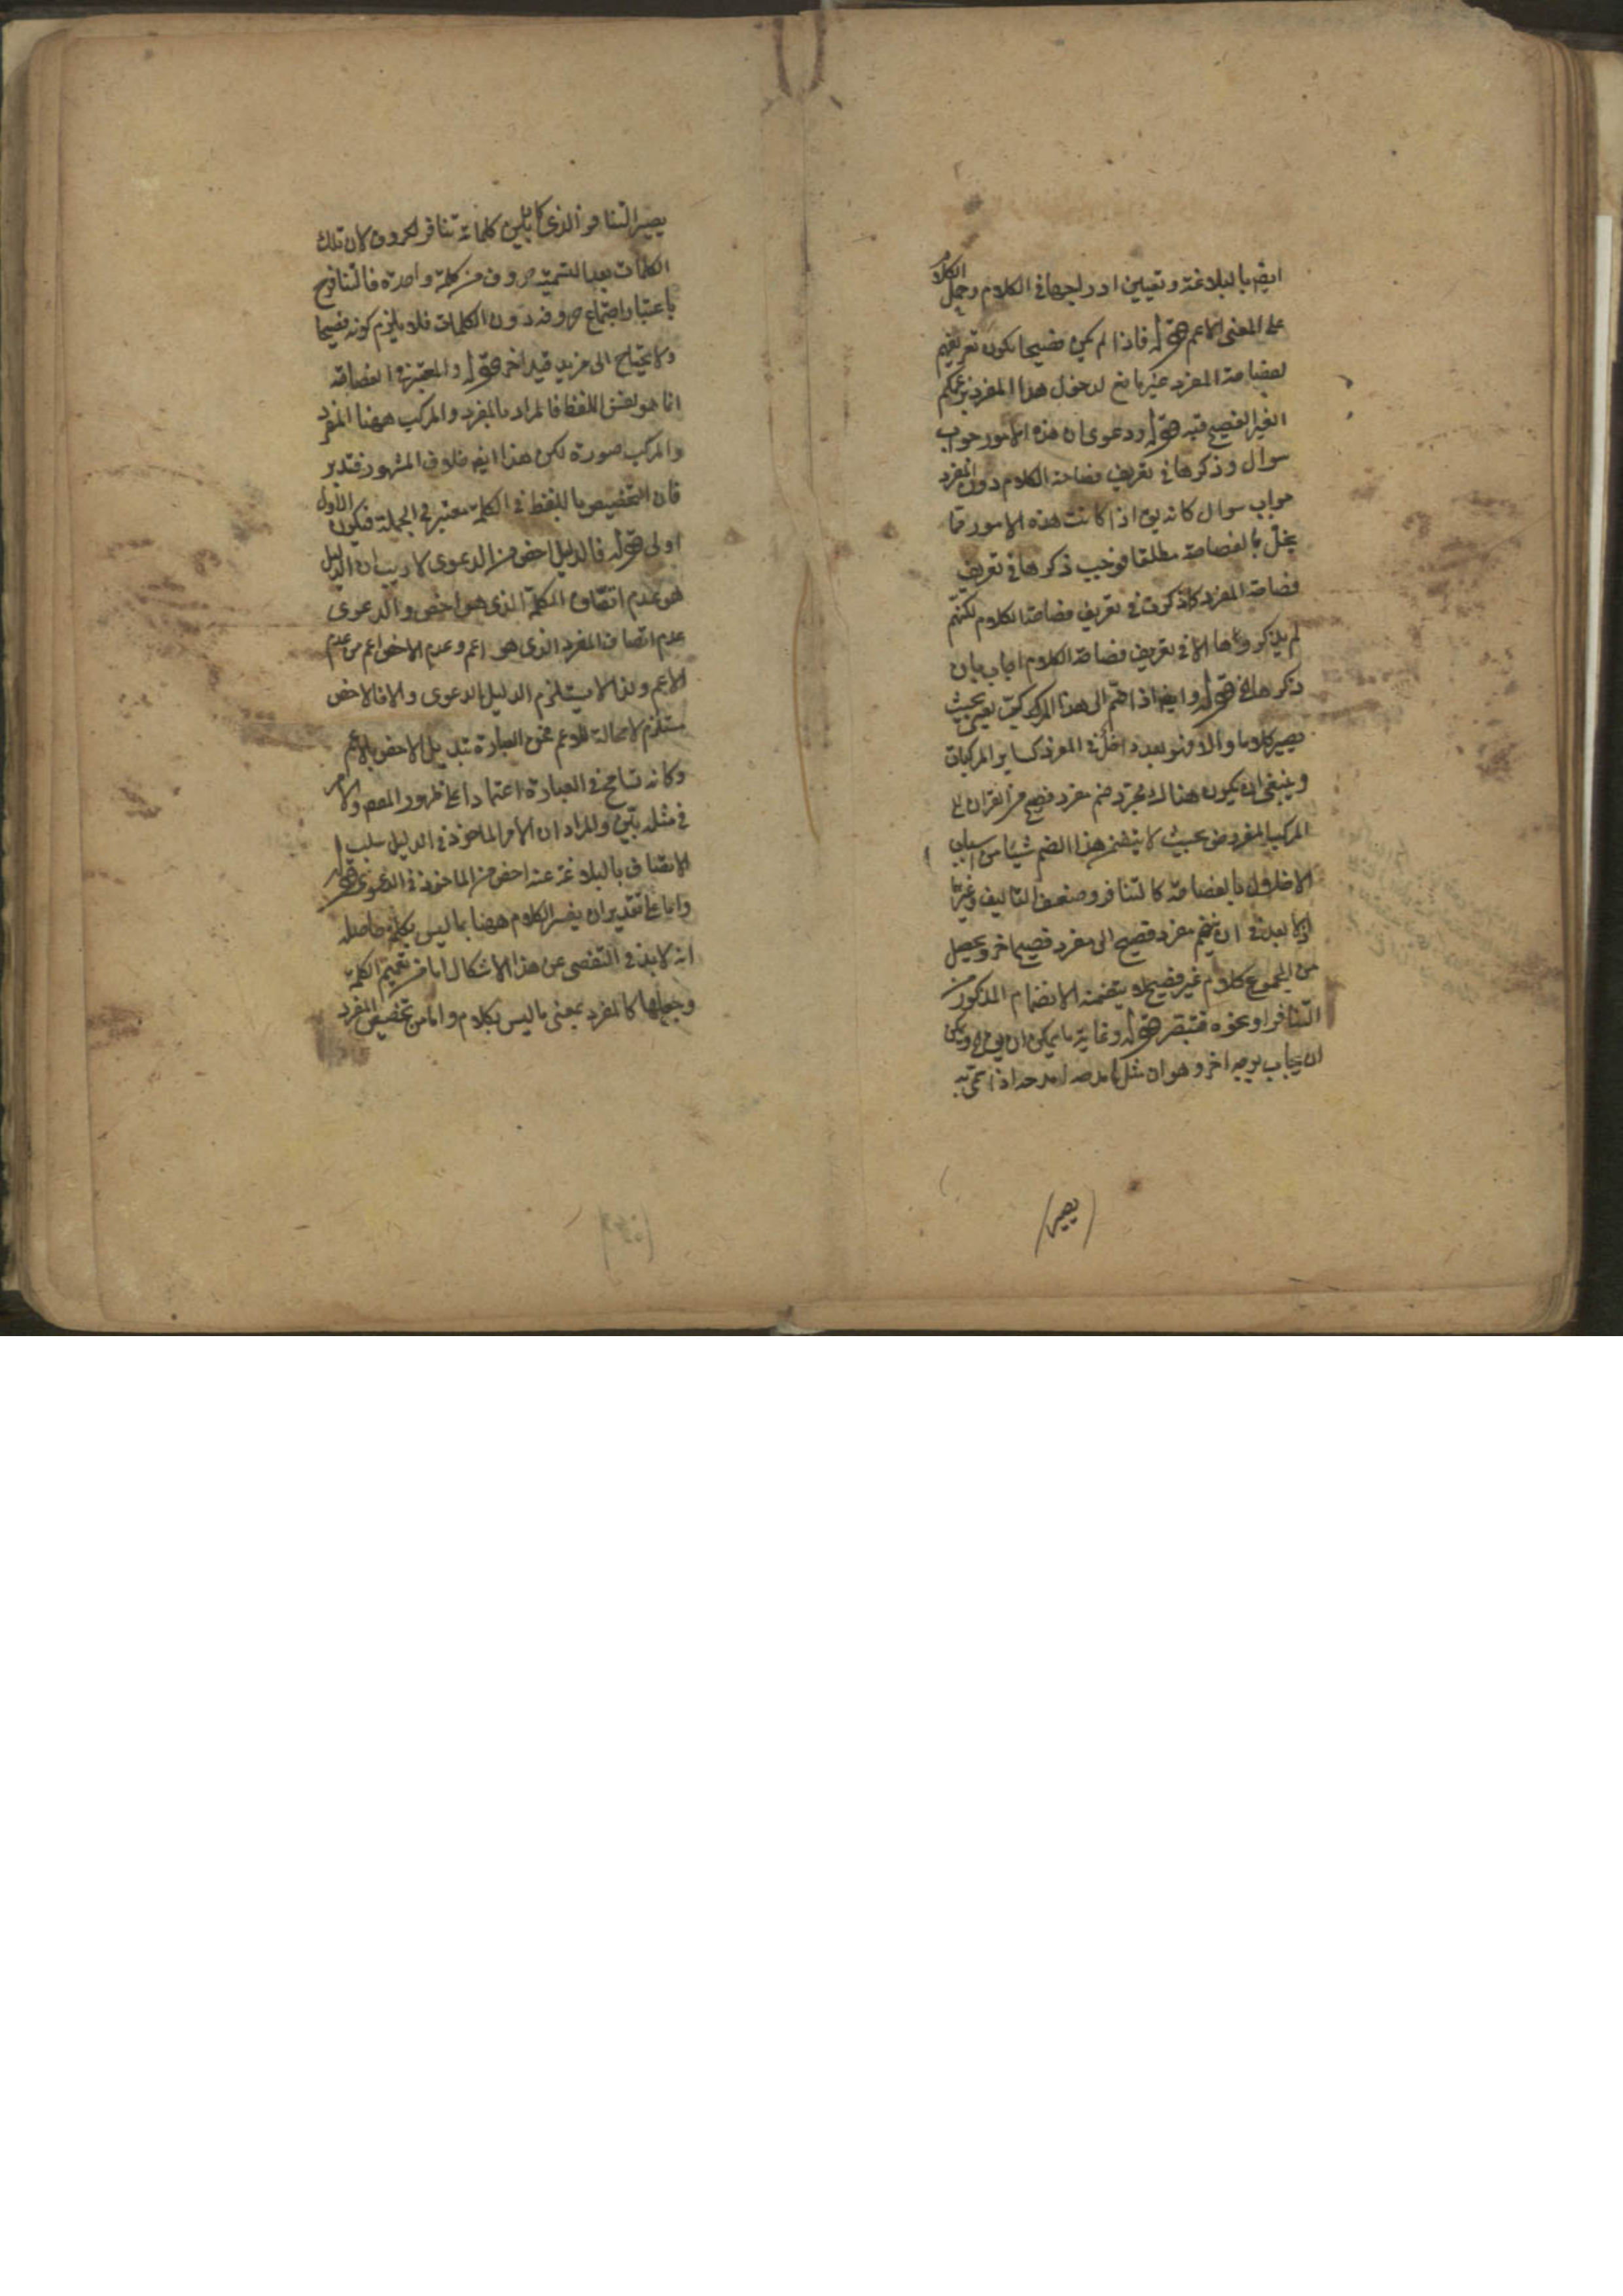 ايضم بالبلاغة وتعيين ادراجها في الكلام وحمل الكلام
على المعنى الاعم قوله فاذا لم يكن فصيحا يكون تعريفهم
لفصاحة المفرد غير مانع لدخول هذا المفرد بزعمكم
الغير الفصيح فيه قوله ودعوى ان هذه الامور جواب
سوال وذكرها في تعريف فصاحة الكلام دون المفرد
جواب سوال كانه يق اذا كانت هذه الامور مما
يخل بالفصاحة مطلقا فوجب ذكرها في تعريف
فصاحة المفرد كما ذكرت في تعريف فصاحة الكلام لكنهم
لم يذكروها الا في تعريف فصاحة الكلام اجاب بان
ذكرها الخ قوله وايضا اذا ضم الى هذا المركب يعنى بحيث
يصير كلاما والا فهو بعد داخل في المفرد كساير المركبات
وينبغي ان يكون هناك مجرد ضم مفرد فصيح من القران الى
المركب المفروض بحيث لا يتضمن هذا الضم شيئا من اسباب
الاخلال بالفصاحة كالتنافر وضعف التاليف وغيرها
اذ لا بعد في ان يضم مفرد فصيح الى مفرد فصيح اخر ويحصل
من المجموع كلام غير فصيح لما يتضمنه الانضمام المذكور من
التنافر او نحوه فتبصر قوله وغاية ما يمكن ان يق ويمكن
ان يجاب بوجه اخر وهو ان مثل امدحه امدحه اذا سمى به
يصير
يصير التنافر الذي كان بين كلماته تنافر الحروف لان تلك
الكلمات بعد التسمية حروف من كلمة واحدة فالتنافر ح
باعتبار اجتماع حروفه دون الكلمات فلا يلزم كونه فصيحا
ولا يحتاج الى مزيد قيد اخر قوله والمعتبر في الفصاحة
انما هو نفس اللفظ فالمراد بالمفرد والمركب ههنا المفرد
والمركب صورة لكن هذا ايضا خلاف المشهور فتدبر
فان التخصيص باللفظ في الكلمة معتبر في الجملة فيكون الاول
اولى قوله فالدليل اخص من الدعوى لا ريب ان الدليل
هو عدم اتصاف الكلمة الذي هو اخص والدعوى
عدم اتصاف المفرد الذي هو اعم وعدم الاخص اعم من عدم
الاعم ولذا لا يستلزم الدليل الدعوى والا فالاخص
مستلزم لا محالة للاعم فمن العبارة تبديل الاخص بالاعم
وكانه تسامح في العبارة اعتمادا على ظهور المقصود والامر
في مثله بين والمراد ان الامر الماخوذ في الدليل سلب
الاتصاف بالبلاغة عنه اخص من الماخوذ في الدعوى قوله
واما على تقدير ان يفسر الكلام ههنا بما ليس بكلمة حاصله
انه لا بد في التفصى عن هذا الاشكال اما من تعميم الكلمة
وجعلها كالمفرد بمعنى ما ليس بكلام واما من تخصيص المفرد